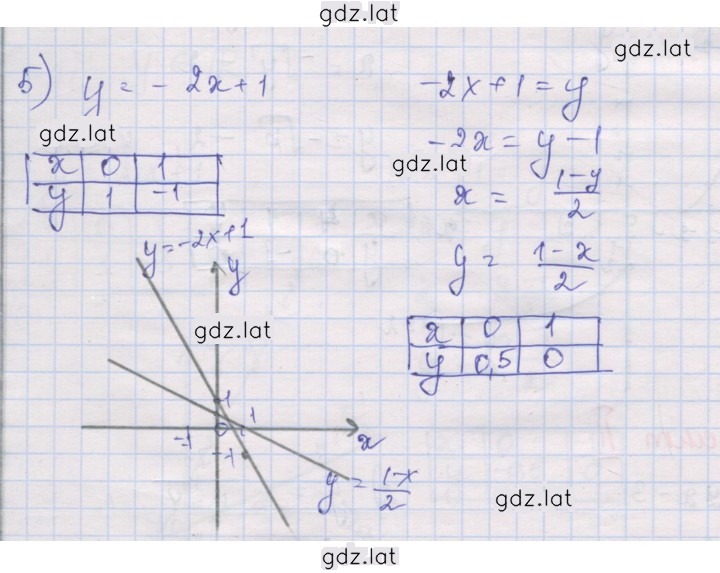 gdz.lat
gdz.lat
5) y = -2x+1
-2x+1 = y
gdz.lat
-2x = y-1
gdz.lat
x 0 1
y 1 -1
x = (1-y)/2
y=-2x+1
y
y = (1-x)/2
gdz.lat
x 0 1
y 0,5 0
1
1
-1 0
x
-1
y = (1-x)/2
gdz.lat
gdz.lat